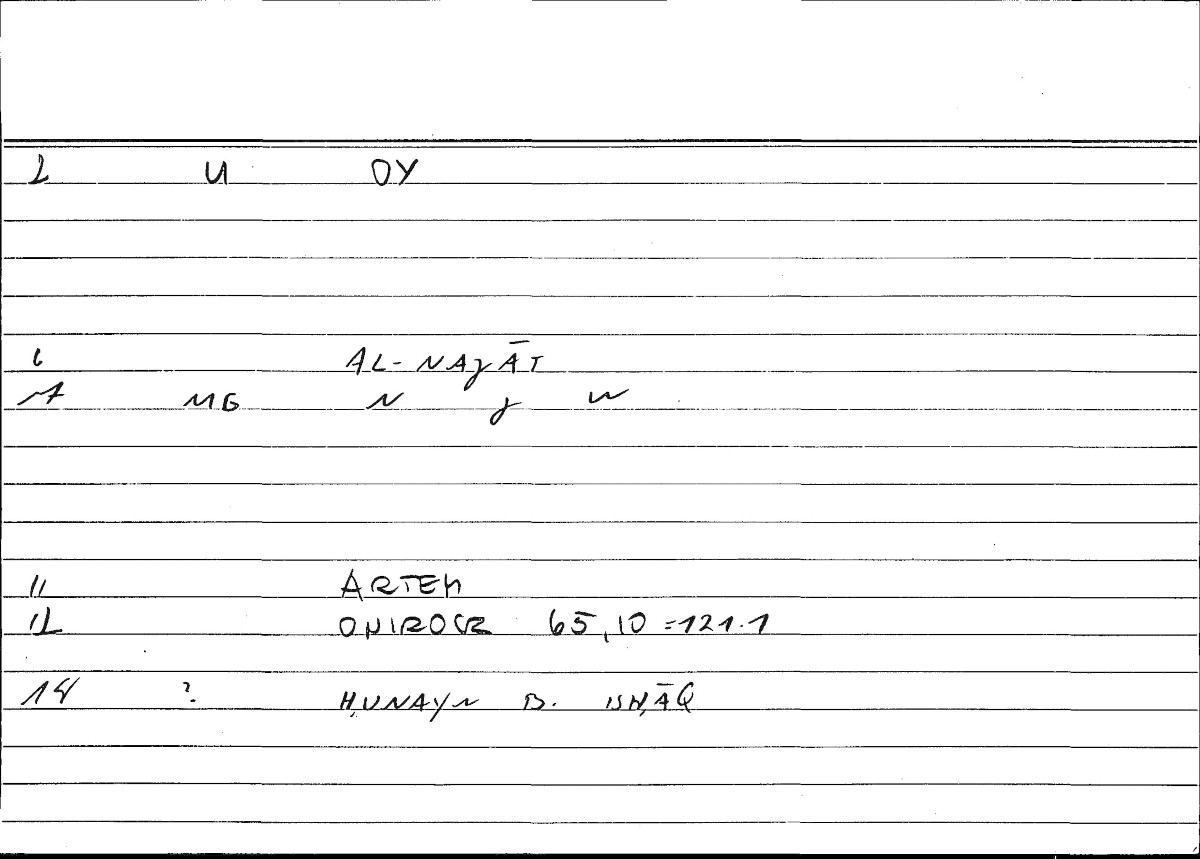 2 U OY
6 AL-NAJĀT
7 MG N J W
11 ARTEM
12 ONIROCR 65,10 =121.1
14 ? ḤUNAYN B. ISḤĀQ